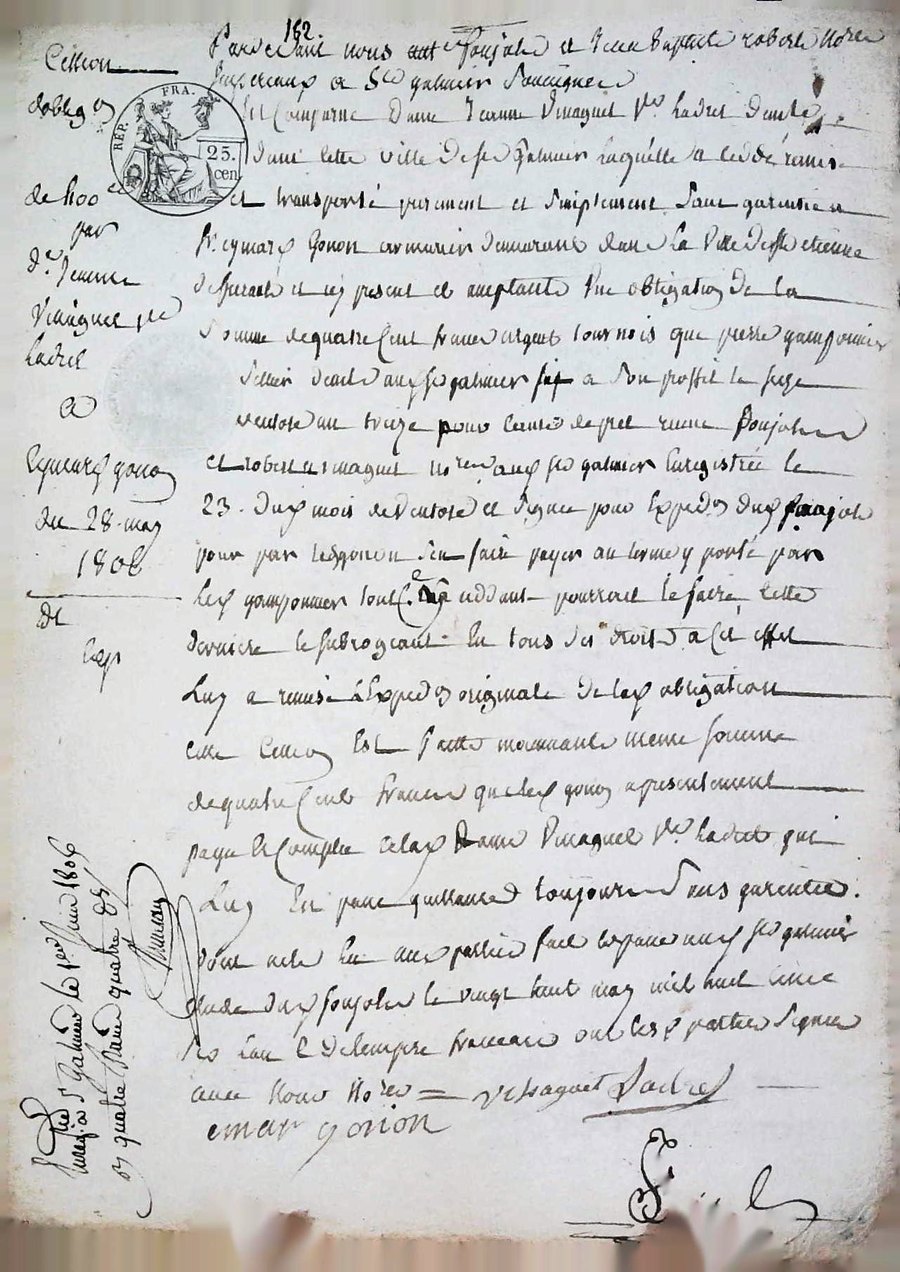 182.
Cession
d'oblig.on
de 400
par
d.e Jeanne
Vinaguet v.e
Ladret
a
Eymard gonon
du 28 may
1806
dt
Exp
RÉP. FRA.
25. cen
Pardevant nous Poujole et Jean Baptiste robert No.res
Imperiaux a S.t galmier soussignés
est Comparue Dame Jeanne Vinaguet V.e Ladret Demte
dans cette ville de St Galmier Laquelle a cedé remis
et transporté purement et simplement sans garentie a
S.r eymard Gonon armurier demeurant dans La Ville de St etienne
et icy present et acceptant Une obligation De La
Somme de quatre Cent francs argent tournois que pierre gamponnier
Sellier dud St galmier fit a Son proffit le seize
ventose an treize pour Cause de pret recue Poujole
et robert No.res aud St galmier Enregistrée le
23. Dud mois de Ventose et Signée pour Exped.on Dud Poujole
pour par led gonon s'en faire payer au terme y porté par
Led gamponnier tout C.e la cedante pourroit le faire, cette
derniere le subrogeant En tous ses droits a Cet effet
Luy a remise L'Exped.on originale De lad obligation
cette Cession Est faitte moienant meme somme
de quatre Cent francs que led gonon a presentement
payé et Compté a lad Dame Vinaguet V.e Ladret qui
Luy En passe quittance toujours Sans garentie.
Dont acte Lu aux parties fait et passé aud St galmier
etude Dud Poujole le vingt huit may mil huit cent
six L'an 2 De L'empire francais ont les d parties Signées
avec Nous No.res = Vinaguet Ladret
emar gonon
Enreg. a St Galmier le 1.er juin 1806
quatre francs quatre